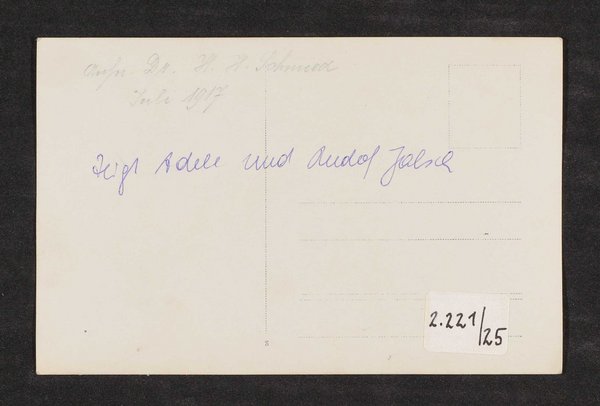 Aufn. Dr. H. H. Schmied
Juli 1917
Zeigt Adele und Rudolf Jalsch
2.221/25